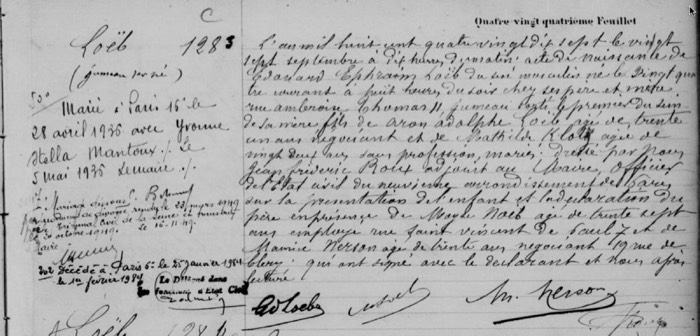 Quatre vingt quatrième Feuillet
C
Loëb 1283
(jumeau 1er né)
Marié à Paris 16e le
28 avril 1936 avec Yvonne
Stella Mantoux ./. Le
5 mai 1936 Lemaire ./.
302 Décédé à Paris 5e le 25 janvier 1984
le 1er février 1984
L'an mil huit cent quatre vingt dix sept le vingt
sept septembre à dix heures du matin : acte de naissance de
Edouard Ephraïm Loëb du sexe masculin né le vingt qua
tre courant à huit heures du soir chez ses père et mère
rue Ambroise Thomas 11, jumeau sorti le premier du sein
de sa mère fils de Aron Adolphe Loëb âgé de trente
un ans négociant et de Mathilde Klotz âgée de
vingt deux ans sans profession, mariés ; dressé par nous
Jean Frédéric Roux adjoint au Maire, officier
de l'état civil du neuvième arrondissement de Paris
sur la présentation de l'enfant et la déclaration du
père en présence de Loëb âgé de trente sept
ans employé rue saint vincent de Paul 7 et de
Maurice Herson âgé de trente ans négociant 19 rue de
Clery : qui ont signé avec le déclarant et nous après
lecture.
Ad Loeb M. Herson
Loëb 1284